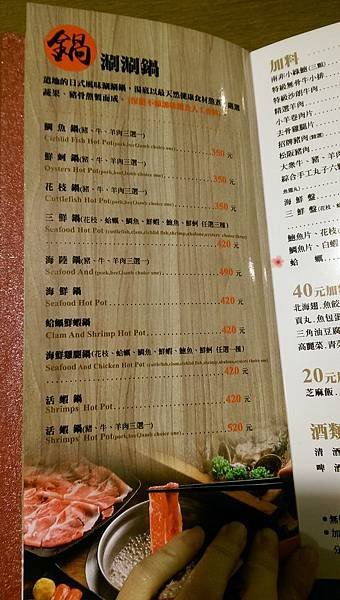 鍋 涮涮鍋
道地的日式風味涮涮鍋,湯底以最天然健康食材熬煮,嚴選
蔬果、豬骨熬製而成。
鯛魚鍋(豬、牛、羊肉三選一)
Cichlid Fish Hot Pot(pork,beef,lamb choice one) 350 元
鮮蚵鍋(豬、牛、羊肉三選一)
Oysters Hot Pot(pork,beef,lamb choice one) 350 元
花枝鍋(豬、牛、羊肉三選一)
Cuttlefish Hot Pot(pork,beef,lamb choice one) 350 元
三鮮鍋(花枝、蛤蠣、鯛魚、鮮蝦、鮑魚、鮮蚵 任選三種)
Seafood Hot Pot
420 元
海陸鍋(豬、牛、羊肉三選一)
Seafood And(pork,beef,lamb choice one) 490 元
海鮮鍋
Seafood Hot Pot 420 元
蛤蠣鮮蝦鍋
Clam And Shrimp Hot Pot 420 元
海鮮雞腿鍋(花枝、蛤蠣、鯛魚、鮮蝦、鮑魚、鮮蚵 任選一種)
Seafood And Chicken Hot Pot
420 元
活蝦鍋
Shrimps Hot Pot 420 元
活蝦鍋(豬、牛、羊肉三選一)
Shrimps Hot Pot(pork,beef,lamb choice one) 520 元
加料
南非小綠鮑(三顆)
特級無骨牛小排
特級沙朗牛肉
精選羊肉
小羊卷肉片
去骨雞腿片
招牌豬肉(精選)
松阪豬肉
大衆牛、豬、羊
綜合手工丸子六
海鮮盤
三鮮盤(花枝、
鮑魚片、花枝
鯛魚片、白蝦
蛤蠣
40元加
北海翅、魚餃
貢丸、魚包蛋
三角油豆腐
高麗菜、青菜
20元
芝麻飯、
酒類
清酒
啤酒